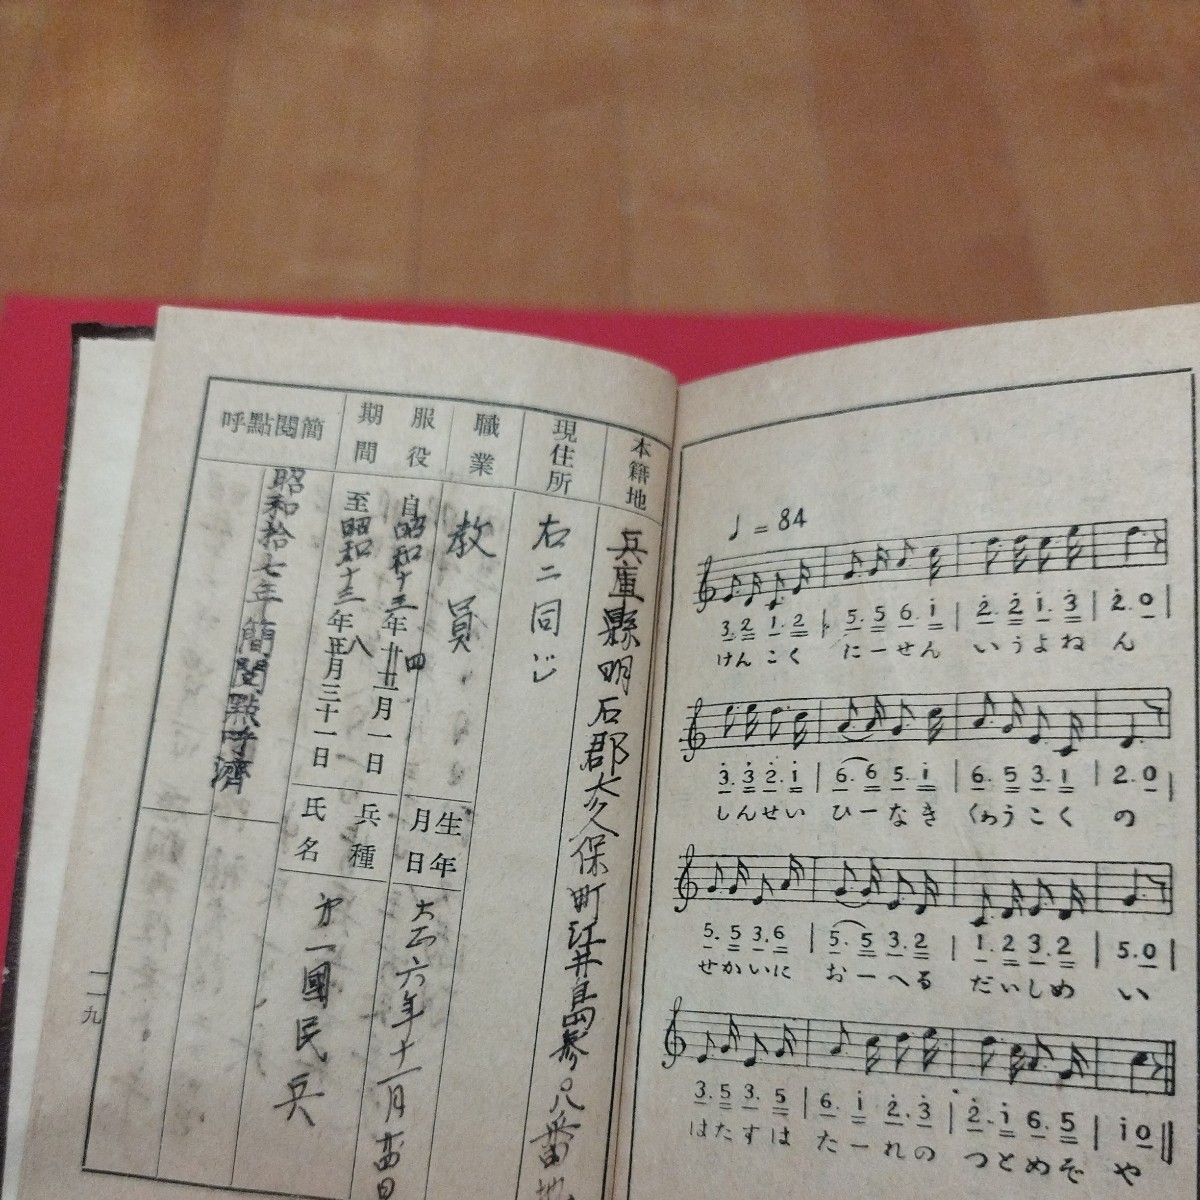 ♩=84
3. 2 1. 2 | 5. 5 6. i | 2. 2 i. 3 | 2. 0 |
けんこく にーせん いうよね ん
3. 3 2. i | 6. 6 5. i | 6. 5 3. 1 | 2. 0 |
しんせい ひーなき くわうこく の
5. 5 3. 6 | 5. 5 3. 2 | 1. 2 3. 2 | 5. 0 |
せかいに おーへる だいしめ い
3. 5 3. 5 | 6. i 2. 3 | 2. i 6. 5 | i 0 ||
はたすは たーれの つとめぞ や
本籍地
兵庫縣明石郡大久保町江井島参八番地
現住所
右ニ同じ
職業
教員
服役期間
自昭和十三年四月一日
至昭和十三年八月三十一日
生年月日
大正六年十一月
兵種
第一國民兵
氏名
簡閲點呼
昭和拾七年簡閲點呼濟
一一九